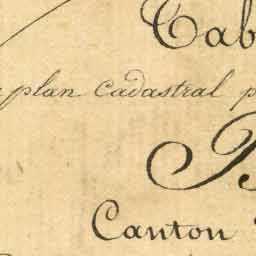 Cab
plan cadastral p
B
Canton